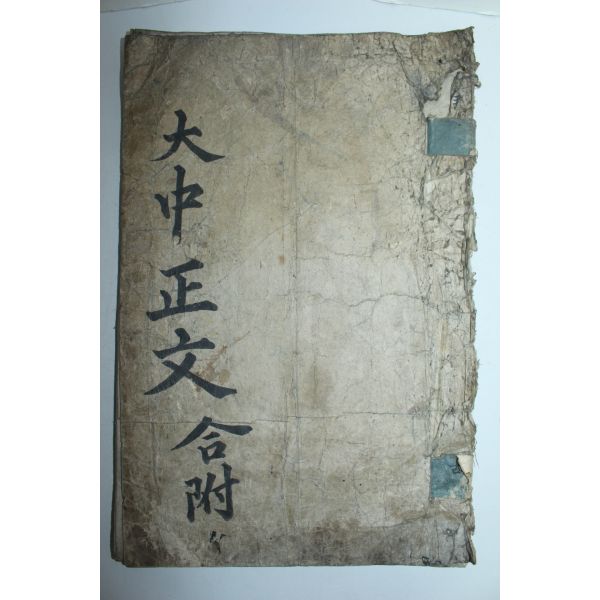 大中正文合附